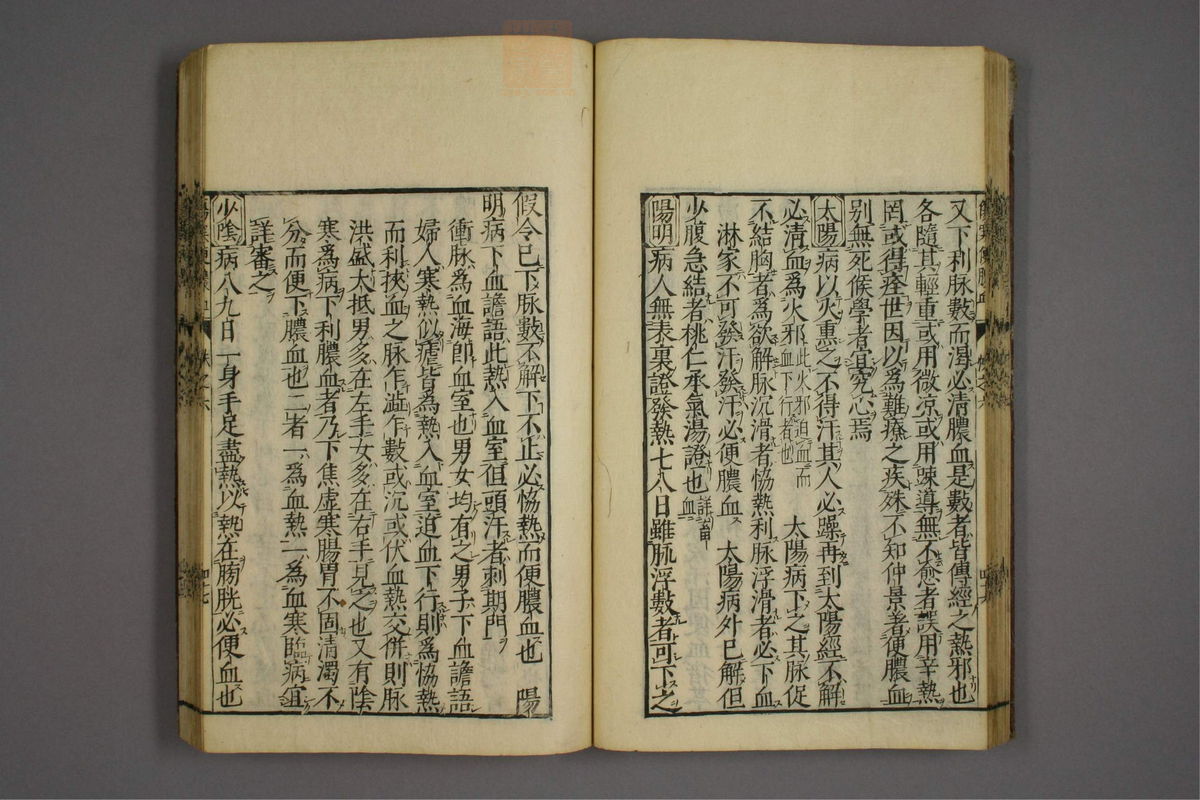 又下利脉數而渴必清膿血是數者皆傳經之熱邪也
各隨其輕重或用微凉或用踈導無不愈者誤用辛熱
罔或得痊世因以爲難療之疾殊不知仲景著便膿血
别無死候學者宜究心焉
太陽病以火熏之不得汗其人必躁再到太陽經不解
必清血爲火邪此火邪迫血而血下行者也 太陽病下之其脉促
不結胸者爲欲解脉沉滑者恊熱利脉浮滑者必下血
淋家不可發汗發汗必便膿血 太陽病外已解但
少腹急結者桃仁承氣湯證也詳畜血
陽明病人無表裏證發熱七八日雖脉浮數者可下之
假令已下脉數不解下不止必恊熱而便膿血也 陽
明病下血譫語此熱入血室但頭汗者刺期門
衝脉爲血海卽血室也男女均有之男子下血譫語
婦人寒熱似瘧皆爲熱入血室迫血下行則爲恊熱
而利挾血之脉乍澁乍數或沉或伏血熱交併則脉
洪盛大抵男多在左手女多在右手見之也又有陰
寒爲病下利膿血者乃下焦虛寒腸胃不固清濁不
分而便下膿血也二者一爲血熱一爲血寒臨病宜
詳審之
少陰病八九日一身手足盡熱以熱在膀胱必便血也